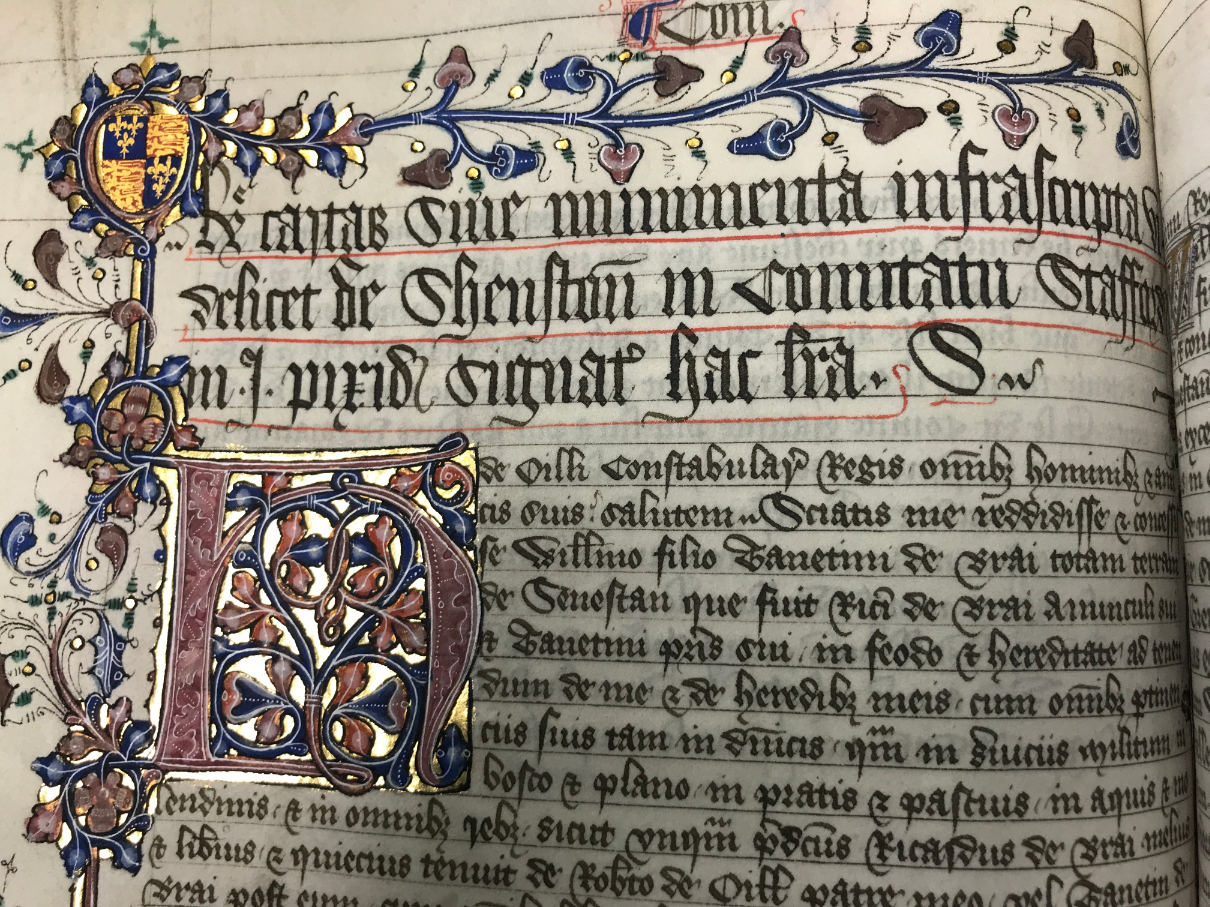 Com.
Rͤx cartas siue munimenta infrascripta
delicet de Shenston̄ in Comitatu Staffor
in .I. pixid signat hac lr̄a. S
H
de Oilli Constabular Regis om̄ibꝫ hominibꝫ ⁊ ami
cis suis salutem Sciatis me reddidisse ⁊ conces
se Will̄mo filio Ganetini de Brai totam terram
de Senestan que fuit Ric̄i de Brai Auunculi sui
et Ganetini pr̄is sui in feodo ⁊ hereditate ad tenen
dum de me ⁊ de heredibꝫ meis cum om̄ibꝫ ptinen
ciis suis tam in dn̄icis qm̄ in s̄uiciis militum in
bosco ⁊ plano in pratis ⁊ pascuis in aquis ⁊ mo
lendinis ⁊ in omnibꝫ rebꝫ sicut vnqm̄ p̄dcūs Ricardus de Brai melius
⁊ lib̄ius ⁊ quiecius tenuit de Rob̄to de Oill patre meo vel Ganetin de
Brai post eum